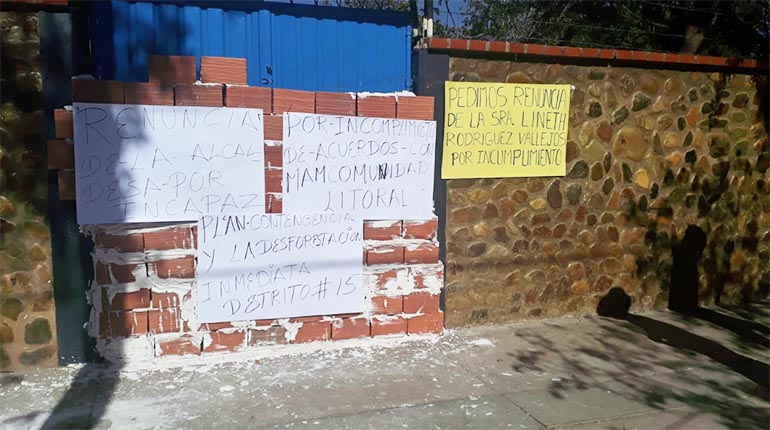 RENUNCIA
DE-LA-ALCAL
DESA-POR
INCAPAZ
POR-INCOMPLIMIENTO
DE-ACUERDOS-CON
MAMCOMUNIDAD
LITORAL
PLAN-CONTENGENCIA
Y LA DESFORETACIÓN
INMEDIATA
DETRITO #15
PEDIMOS RENUNCIA
DE LA SRA. LINETH
RODRIGUEZ VALLEJOS
POR INCUMPLIMIENTO